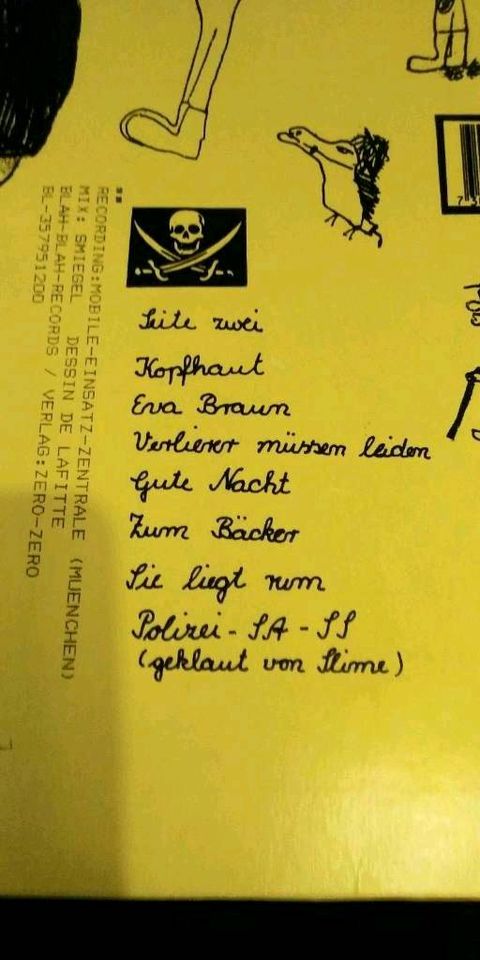 RECORDING:MOBILE-EINSATZ-ZENTRALE (MUENCHEN)
MIX: SMIEGEL DESSIN DE LAFITTE
BLAH-BLAH-RECORDS / VERLAG:ZERO-ZERO
BL-357951200
Seite zwei
Kopfhaut
Eva Braun
Verlierer müssen leiden
Gute Nacht
Zum Bäcker
Sie liegt rum
Polizei-SA-SS
(geklaut von Slime)